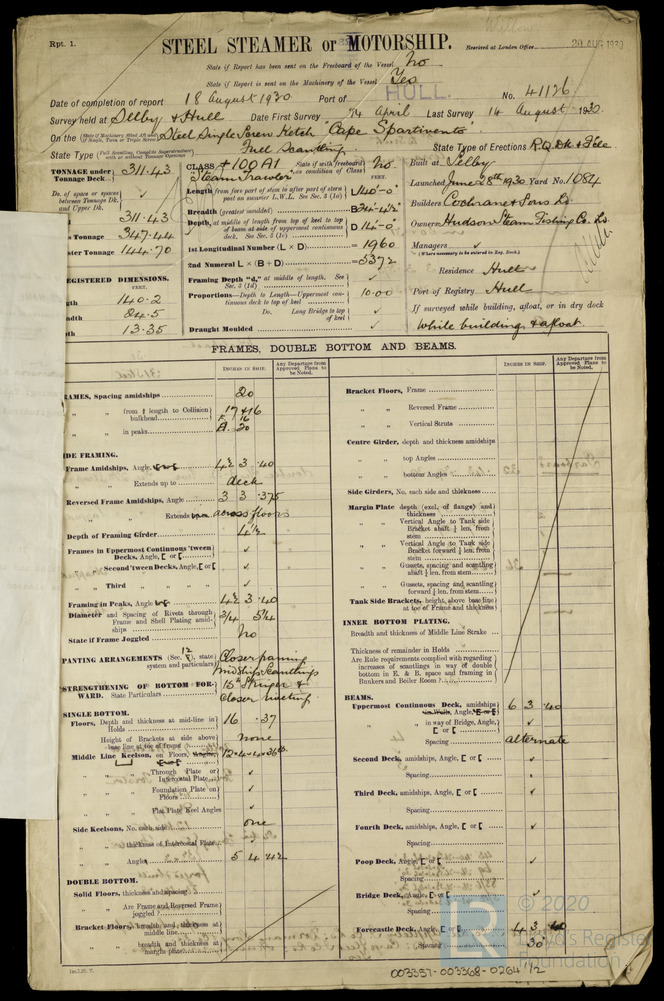 Rpt. 1.
STEEL STEAMER or MOTORSHIP.
Received at London Office 20 AUG 1930
State if Report has been sent on the Freeboard of the Vessel No
State if Report is sent on the Machinery of the Vessel Yes
HULL.
Date of completion of report 18 August 1930 Port of No. 41126
Survey held at Selby & Hull Date First Survey April Last Survey 14 August 1930
On the Steel Single Screw Ketch "Cape Spartivento"
State Type Full Scantling State Type of Erections R.Q.Dk & F'cle
TONNAGE under Tonnage Deck 311.43
Do. of space or spaces between Tonnage Dk. and Upper Dk.
311.43
Tonnage 347.44
ster Tonnage 144.70
REGISTERED DIMENSIONS.
FEET.
gth 140.2
adth 24.5
th 13.35
CLASS +100A1 State if with freeboard as condition of Class No.
"Steam Trawler"
FEET.
Length from fore part of stem to after part of stern post on summer L.W.L. See Sec. 3 (1a) 140-0
Breadth (greatest moulded) B 24-4½
Depth, at middle of length from top of keel to top of beam at side of uppermost continuous deck. See Sec. 3 (1c) D 14-0
1st Longitudinal Number (L × D) = 1960
2nd Numeral L × (B + D) = 5372
Framing Depth "d," at middle of length. See Sec. 3 (1d)
Proportions—Depth to Length—Uppermost continuous deck to top of keel 10.00
Do. Long Bridge to top of keel
Draught Moulded
Built at Selby
Launched June 28th 1930 Yard No. 1084
Builders Cochrane & Sons Ld.
Owners Hudson Steam Fishing Co. Ld.
Managers
(Where necessary to be entered in Reg. Book.)
Residence Hull
Port of Registry Hull
If surveyed while building, afloat, or in dry dock
While building & afloat.
FRAMES, DOUBLE BOTTOM AND BEAMS.
INCHES IN SHIP.
Any Departure from Approved Plans to be Noted.
INCHES IN SHIP.
Any Departure from Approved Plans to be Noted.
RAMES, Spacing amidships 20
" " from ⅕ length to Collision bulkhead
" " in peaks
IDE FRAMING.
Frame Amidships, Angle 4½ 3 .40
" " Extends up to deck
Reversed Frame Amidships, Angle 3 3 .375
" " Extends across floors
Depth of Framing Girder 4½
Frames in Uppermost Continuous 'tween Decks, Angle, [ or [
" Second 'tween Decks, Angle, [ or [
" Third " "
Framing in Peaks, Angle 4½ 3 .40
Diameter and Spacing of Rivets through Frame and Shell Plating amidships 3/4 5¼
State if Frame Joggled No
PANTING ARRANGEMENTS (Sec. 12), state system and particulars Closer panting
midships Scantlings
STRENGTHENING OF BOTTOM FORWARD. State Particulars 15" Stringer &
closer riveting
SINGLE BOTTOM.
Floors, Depth and thickness at mid-line in Holds 16 .37
Height of Brackets at side above base line at toe of frame none
Middle Line Keelson, on Floors, 12.4.4.36
" " Through Plate or Intercostal Plate
" " Foundation Plate on Floors
" " Flat Plate Keel Angles
Side Keelsons, No. each side one
" " thickness of Intercostal Plate
" " Angles 5 4 .42
DOUBLE BOTTOM.
Solid Floors, thickness and spacing
" " Are Frame and Reversed Frame joggled?
Bracket Floors, breadth and thickness at middle line
" " breadth and thickness at margin plate
Bracket Floors, Frame
" " Reversed Frame
" " Vertical Struts
Centre Girder, depth and thickness amidships
" " top Angles
" " bottom Angles
Side Girders, No. each side and thickness
Margin Plate depth (excl. of flange) and thickness
" " Vertical Angle to Tank side Bracket abaft ¼ len. from stem
" " Vertical Angle to Tank side Bracket forward ¼ len. from stem
" " Gussets, spacing and scantling abaft ¼ len. from stem
" " Gussets, spacing and scantling forward ¼ len. from stem
Tank Side Brackets, height, above base line at toe of Frame and thickness
INNER BOTTOM PLATING.
Breadth and thickness of Middle Line Strake
Thickness of remainder in Holds
Are Rule requirements complied with regarding increases of scantlings in way of double bottom in E. & B. space and framing in Bunkers and Boiler Room?
BEAMS.
Uppermost Continuous Deck, amidships Angle, 6 3 .40
" " in way of Bridge, Angle, [ or [
Spacing alternate
Second Deck, amidships, Angle, [ or [
Spacing
Third Deck, amidships, Angle, [ or [
Spacing
Fourth Deck, amidships, Angle, [ or [
Spacing
Poop Deck, Angle, [ or [
Spacing
Bridge Deck, Angle, [ or [
Spacing
Forecastle Deck, Angle, [ or [ 4 3 .40
Spacing 30
© 2020
Lloyd's Register
Foundation
003357-003368-0264 1/2